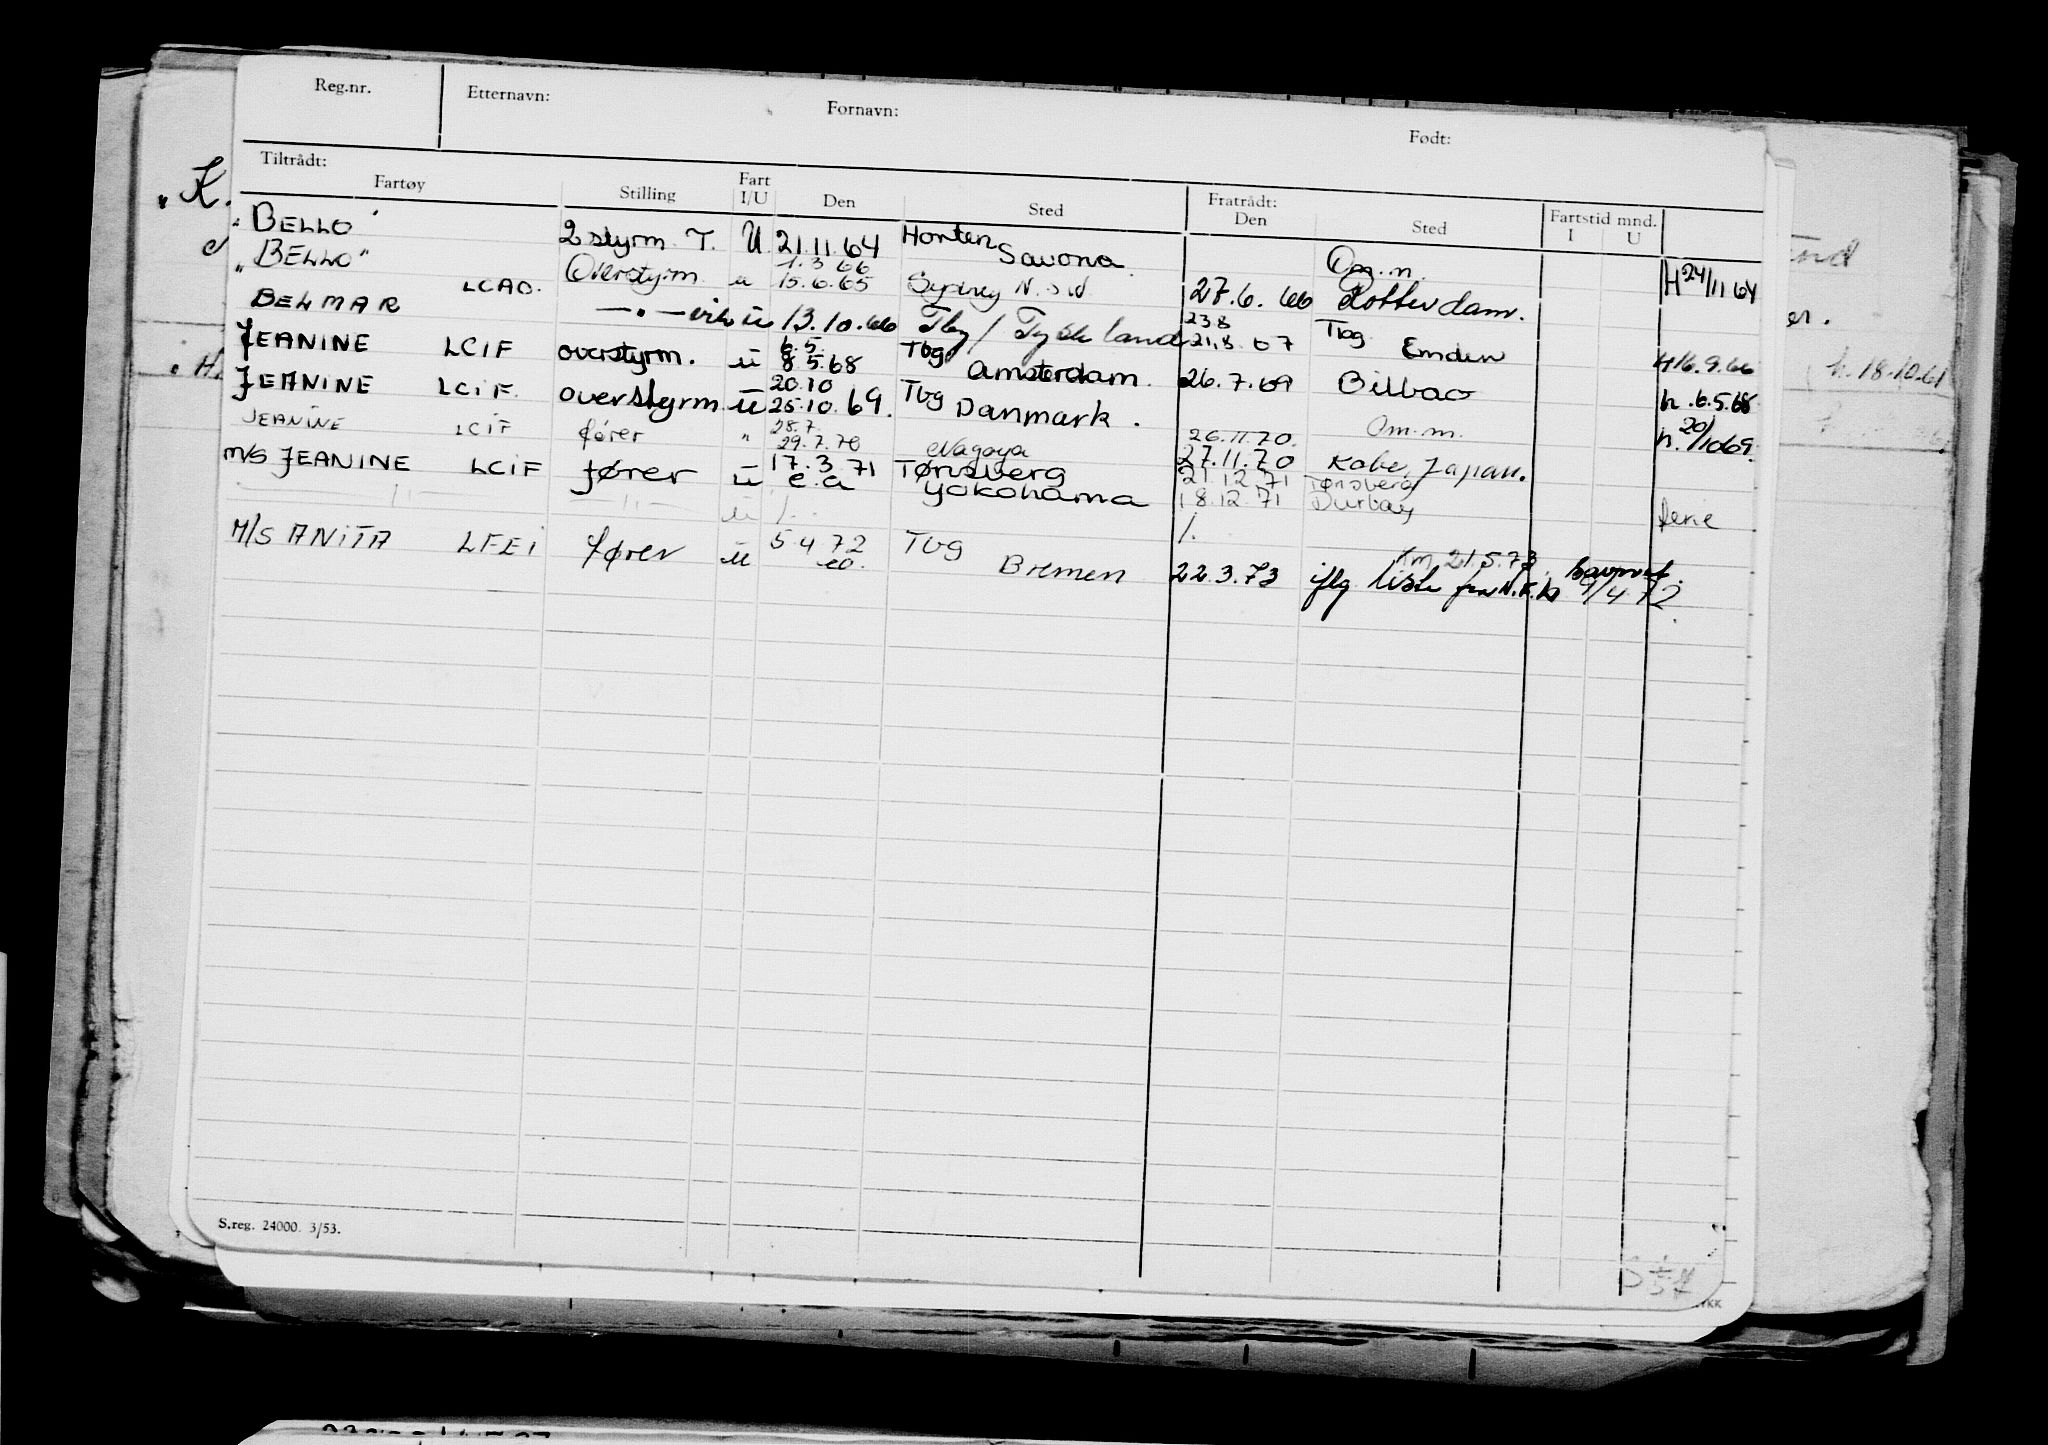 Reg.nr. Etternavn: Fornavn: Født:
Tiltrådt: Fratrådt:
Fartøy Stilling Fart I/U Den Sted Den Sted Fartstid mnd. I U
"BELLO" 2 styrm. T. U 21.11.64 Horten Savona Om.m. H 24/11 64
"BELLO" LCAO. Overstyrm. u 1.3 66 15.6.65 Sydney N.S.W 27.6.66 Rotterdam.
BELMAR —"— u 13.10.66 Tbg / Tyskland 23.8 21.8.67 Tbg Emden H 16.9.66
JEANINE LCIF overstyrm. u 6.5. 8.5.68 Tbg Amsterdam. 26.7.69 Bilbao h.6.5.68
JEANINE LCIF. overstyrm u 20.10 25.10.69. Tbg Danmark. Om.m. h. 20/10 69.
JEANINE LCIF fører " 28.7. 29.7.70 Nagoya 26.11.70. 27.11.70 Kobe, Japan.
M/S JEANINE LCIF fører u 17.3.71 e.a Tønsberg Yokohama 21.12.71 18.12.71 Tønsberg Durban
—"— —"— u /. /. ferie
M/S ANITA LFEI fører u 5 4 72 eo. Tbg Bremen 22.3.73 Km 21.5.73. iflg liste fra N.R.K. 9/4 72.
S.reg. 24000. 3/53.
"K.
h.18.10.61